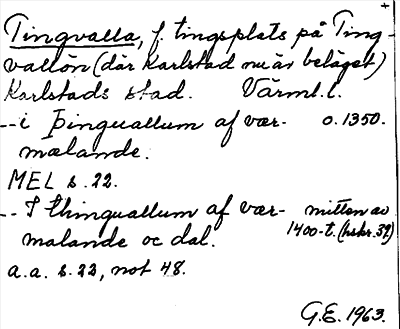 Tingvalla, f. tingsplats på Ting-
vallön (där Karlstad nu är beläget)
Karlstads stad. Värml. l.
--i Þinguallum af vær- o. 1350.
malande.
MEL s. 22.
-- I thinguallum af vær- mitten av
malande oc dal. 1400-t. (hskr. 39)
a.a. s. 22, not 48.
G.E. 1963.